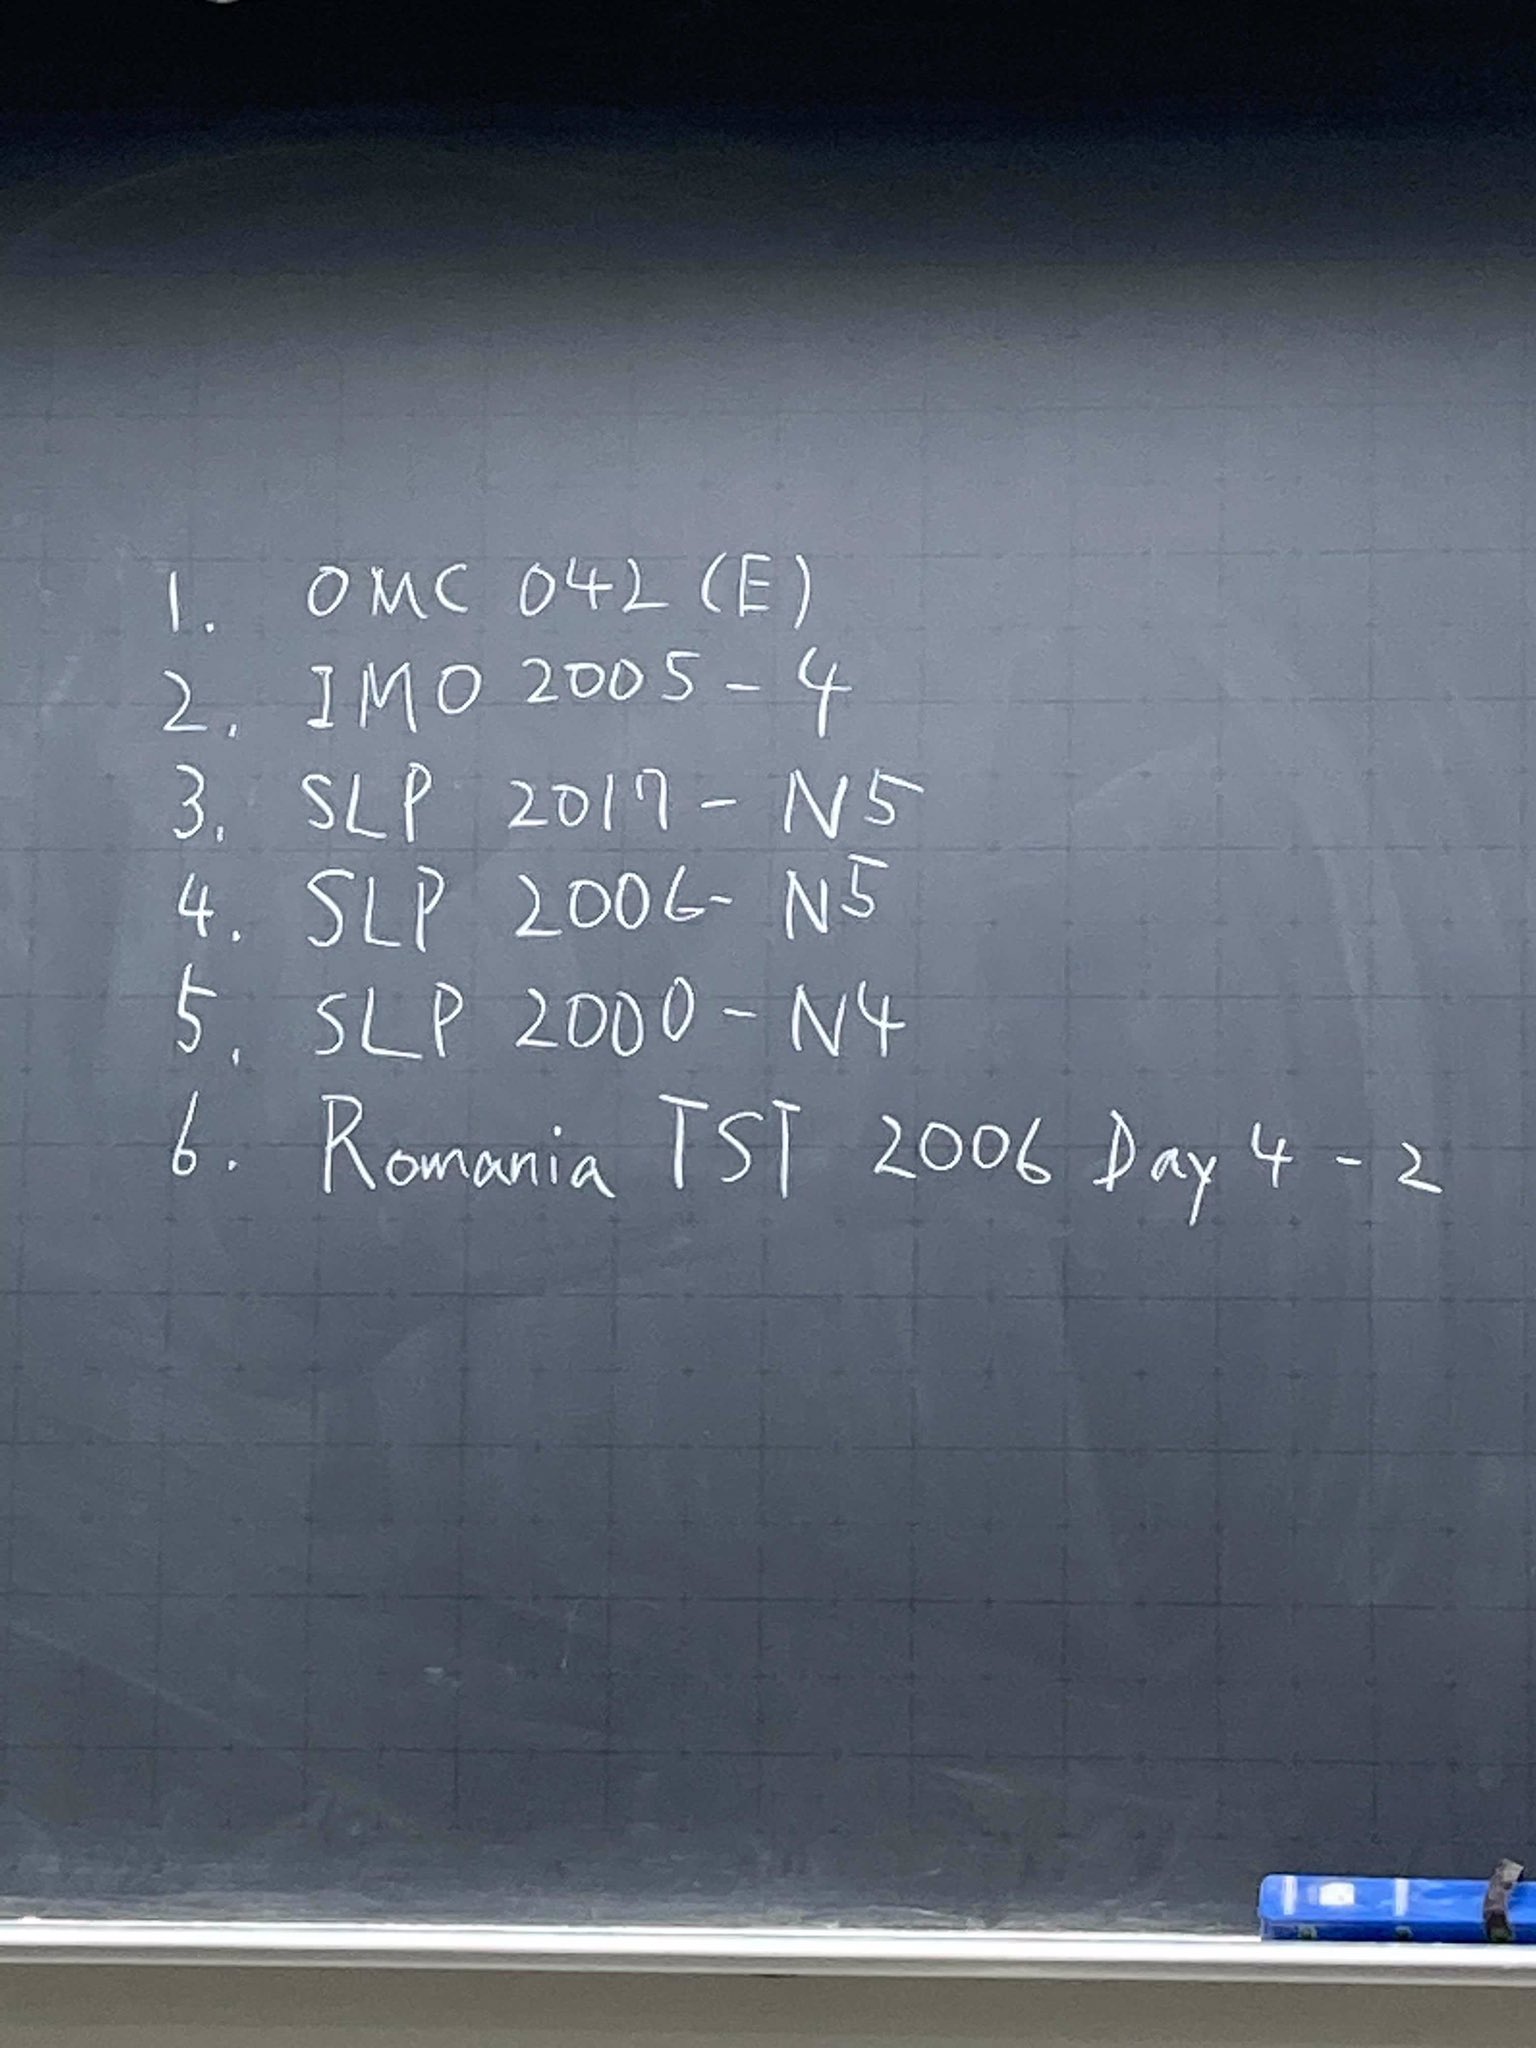 1. OMC 042 (E)
2. IMO 2005 - 4
3. SLP 2017 - N5
4. SLP 2006 - N5
5. SLP 2000 - N4
6. Romania TST 2006 Day 4 - 2